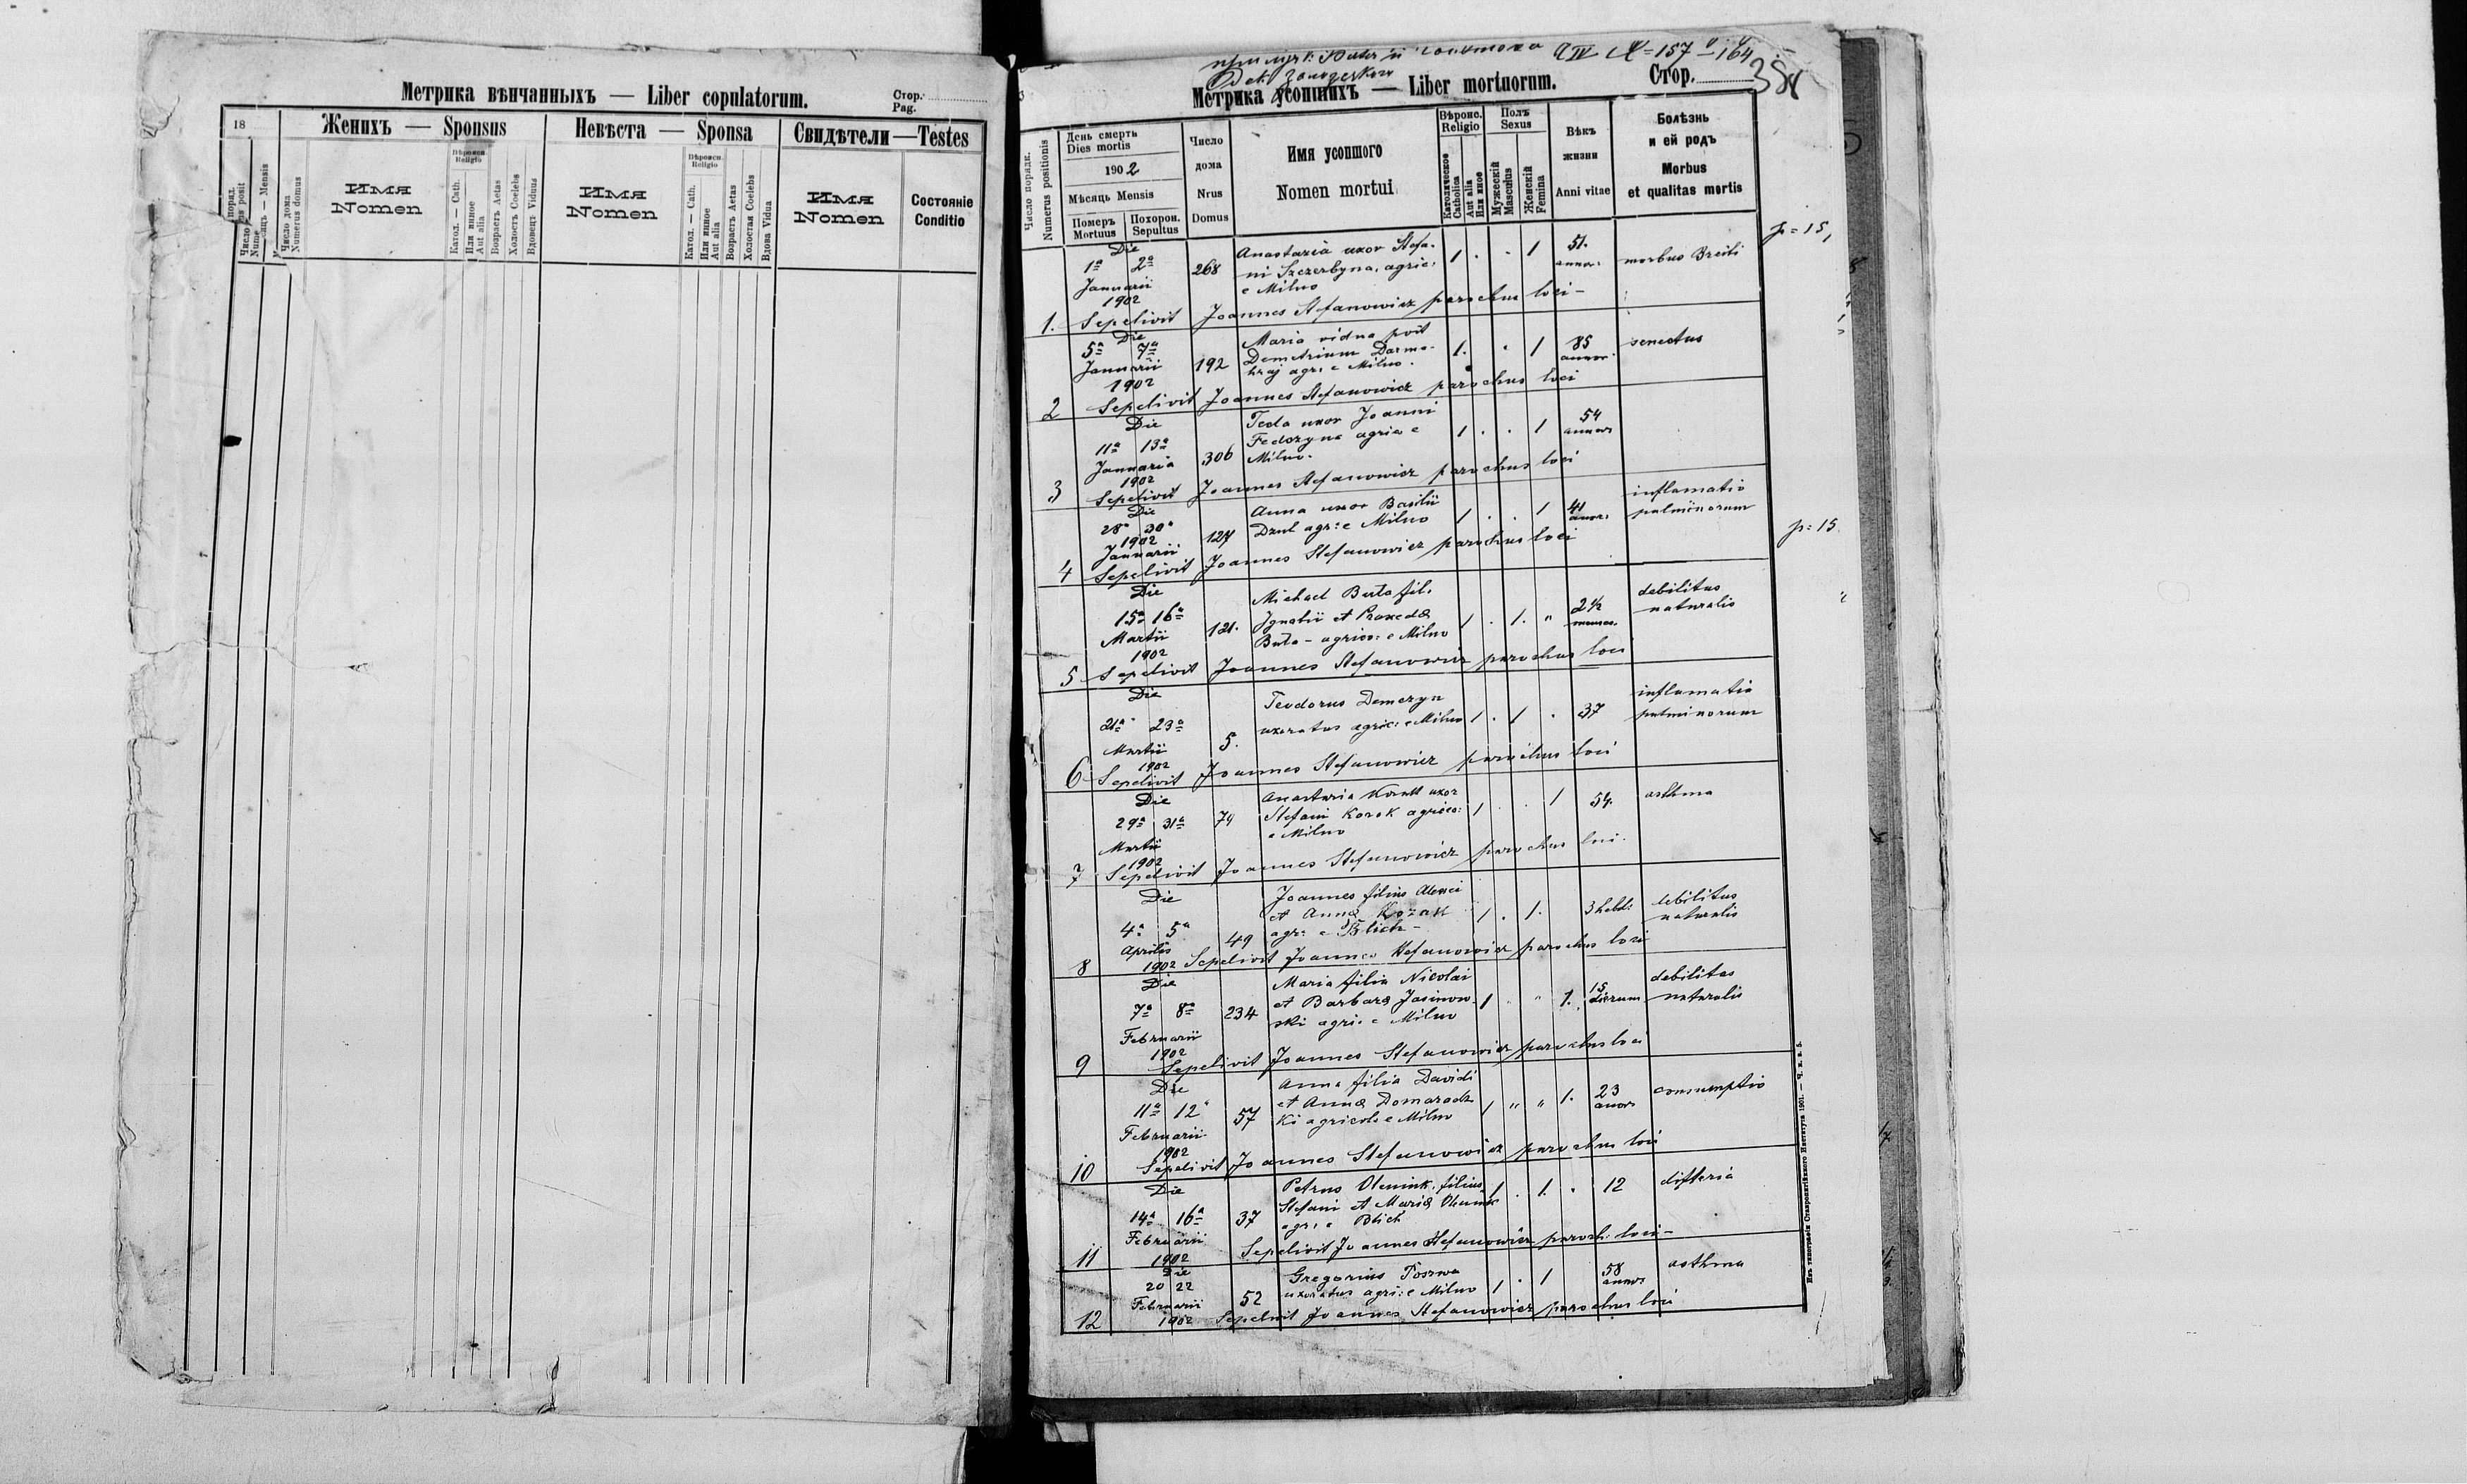 Метрика вѣнчанныхъ — Liber copulatorum.
Стор.
Pag.
18
Женихъ — Sponsus
Невѣста — Sponsa
Свидѣтели — Testes
Число поряд.
Numerus posit
Число дома
Numerus domus
Имя
Nomen
Вѣроисп.
Religio
Катол. — Cath.
Или инное
Aut alia
Возрастъ Aetas
Холостъ Coelebs
Вдовецъ Viduus
Имя
Nomen
Вѣроисп.
Religio
Катол. — Cath.
Или инное
Aut alia
Возрастъ Aetas
Холостая Coelebs
Вдова Vidua
Имя
Nomen
Состояніе
Conditio
157 - 164
Метрика усопшихъ — Liber mortuorum.
Стор.
Число порядк.
Numerus positionis
День смерть
Dies mortis
1902
Мѣсяць Mensis
Померъ
Mortuus
Похорон.
Sepultus
Число
дома
Nrus
Domus
Имя усопшого
Nomen mortui
Вѣроис.
Religio
Католическое
Catholica
Aut alia
Или иное
Полъ
Sexus
Мужескій
Masculus
Женскій
Femina
Вѣкъ
жизни
Anni vitae
Болѣзнь
и ей родъ
Morbus
et qualitas mortis
Die
1ª 2ª
Januarii
1902
268
Anastazia uxor Stefa-
ni Szczerbyna, agric:
e Milno
1 . . 1
51.
annor:
morbus Breiti
p = 15,
1. Sepelivit Joannes Stefanowicz parochus loci -
Die
5ª 7ª
Januarii
1902
192
Maria vidua post
Demetrium Darmo-
hraj agr: e Milno.
1. . 1
85
annor.
senectus
2 Sepelivit Joannes Stefanowicz parochus loci
Die
11ª 13ª
Januaria
1902
306
Tecla uxor Joanni
Fedczyna agric e
Milno.
1 . . 1
54
annor
3 Sepelivit Joannes Stefanowicz parochus loci
Die
28ª 30ª
1902
Januarii
127
Anna uxor Basilii
Dzul agr: e Milno
1 . . 1
41
annor:
inflamatio
pulminorum
p = 15.
4 Sepelivit Joannes Stefanowicz parochus loci
Die
15ª 16ª
Martii
1902
121.
Michael Buta fil.
Ignatii et Praxedæ
Buta - agrico: e Milno
1 . 1. "
2 ½
menses.
debilitas
naturalis
5 Sepelivit Joannes Stefanowicz parochus loci
Die
21ª 23ª
Martii
1902
5.
Teodorus Demczyn
uxoratus agric: e Milno
1 . 1 .
37
inflamatio
pulminorum
6 Sepelivit Joannes Stefanowicz parochus loci
Die
29ª 31ª
Martii
1902
79
Anastasia Korol uxor
Stefani Korok agrico:
e Milno
1 . . 1
54.
asthma
7 Sepelivit Joannes Stefanowicz parochus loci.
Die
4ª 5ª
Aprilis
1902
49
Joannes filius Alexei
et Annæ Kozak
agr: e Blich -
1 . 1.
3 hebd:
debilitas
naturalis
8 Sepelivit Joannes Stefanowicz parochus loci
Die
7ª 8ª
Februarii
1902
234
Maria filia Nicolai
et Barbaræ Jasinow-
ski agri: e Milno
1 " " 1.
15
dierum
debilitas
naturalis
9 Sepelivit Joannes Stefanowicz parochus loci
Die
11ª 12ª
Februarii
1902
57
Anna filia Davidi
et Annæ Domaradz
ki agricola e Milno
1 " " 1.
23
annor
consumptio
10 Sepelivit Joannes Stefanowicz parochus loci
Die
14ª 16ª
Februarii
1902
37
Petrus Olenink filius
Stefani et Mariæ Olenink
agr: e Blich
1 . 1. .
12
difteria
11 Sepelivit Joannes Stefanowicz paroch: loci -
Die
20 22
Februarii
1902
52
Gregorius
uxoratus agri: e Milno
1 . 1
58
annor
asthma
12 Sepelivit Joannes Stefanowicz parochus loci
Изъ типографіи Ставропигійского Института 1901. — Ч. п. в. 5.